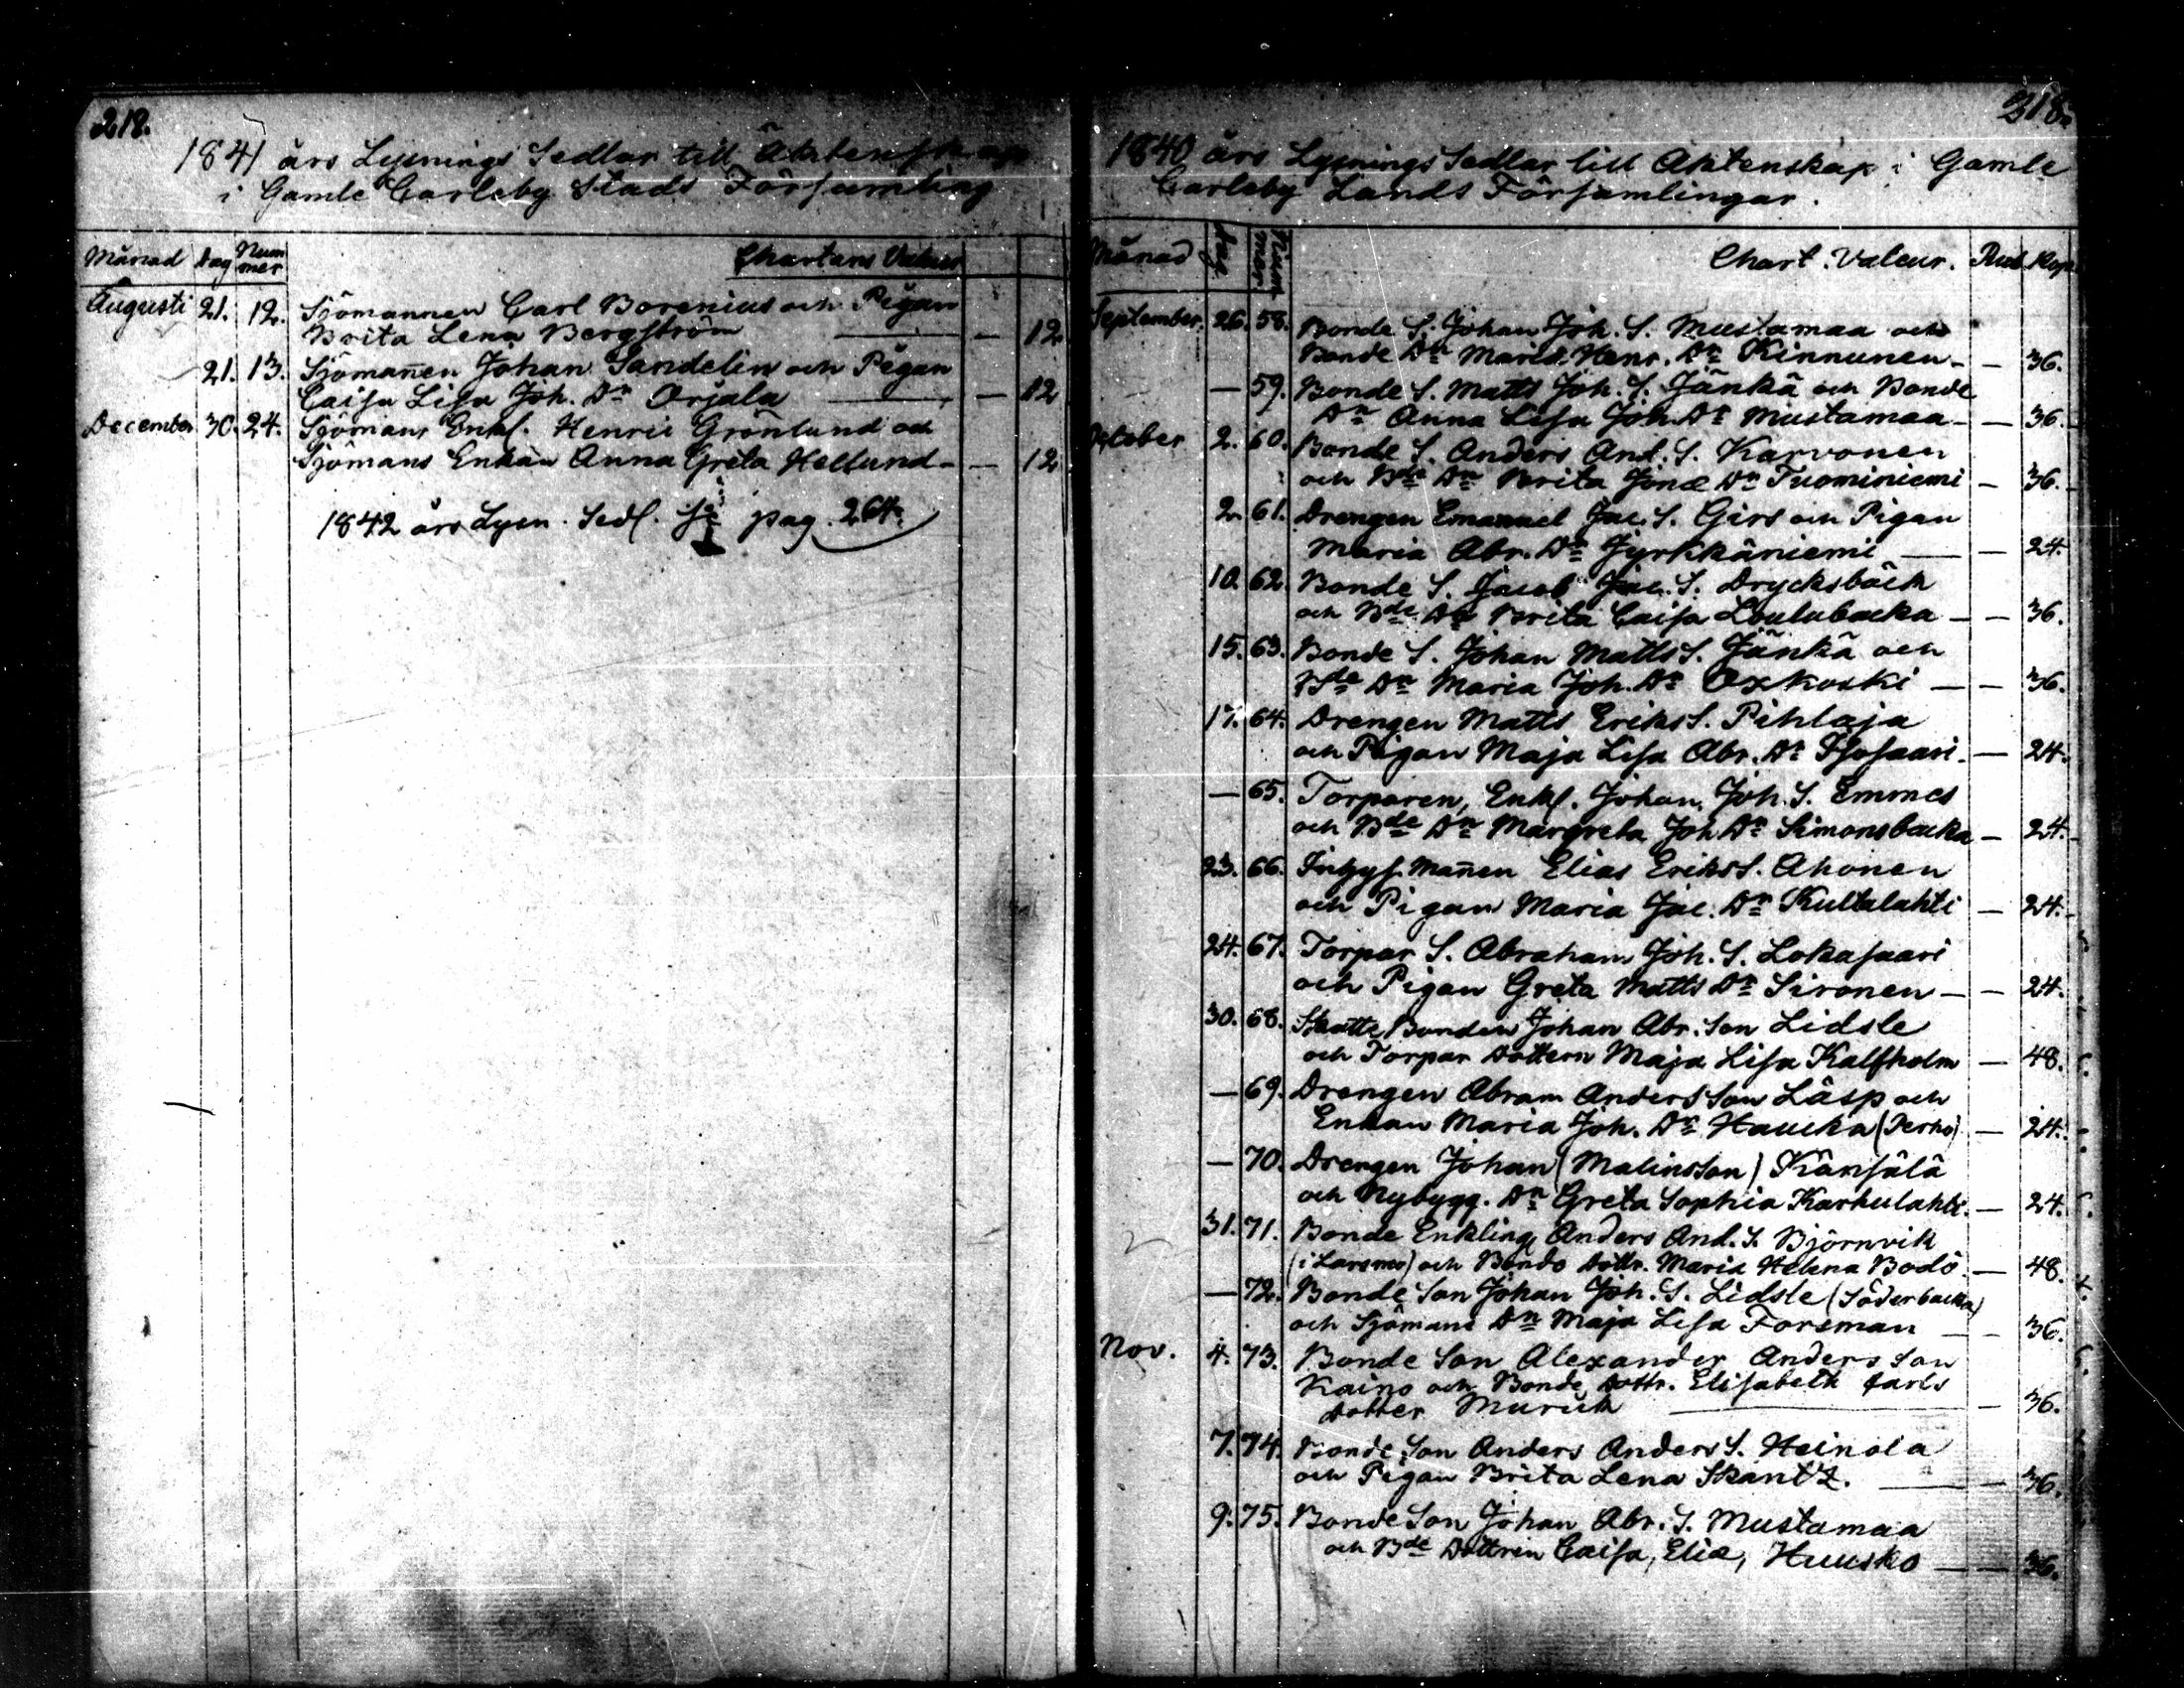 218.
1841 års Lysnings Sedlar till Äktenskap
i Gamle Carleby Stads Församling
Månad Dag Num mer Chartans Valeur
Augusti 21. 12. Sjömannen Carl Borenius och Pigan
Brita Lena Bergström — — 12
21. 13. Sjömañen Johan Sandelin och Pigan
Caisa Lisa Joh. Dr Orjala — — 12
December 30. 24. Sjömans Enkl. Henric Grönlund och
Sjömans Enkan Anna Greta Hellund — — 12
1842 års Lysn. Sedl. pag. 264.
318.
1840 års Lysnings Sedlar till Äktenskap i Gamle
Carleby Lands Församlingar.
Månad Dag Num mer Chart. Valeur. Rub Kop
September. 26. 58. Bonde S. Johan Joh. S. Mustamaa och
Bonde Dr Maria Henr. Dr Kinnunen — — 36.
— 59. Bonde S. Matts Joh. S. Jänkä och Bonde
Dr Anna Lisa Joh. Dr Mustamaa — — 36.
October 2. 60. Bonde S. Anders And. S. Karvonen
och Bde Dr Brita Jonæ Dr Tuominiemi — 36.
2. 61. Drengen Emanuel Jac. S. Girs och Pigan
Maria Abr. Dr Jyrkkäniemi — — 24.
10. 62. Bonde S. Jacob Jac. S. Drycksbäck
och Bde Dr Brita Caisa Loulubacka — — 36.
15. 63. Bonde S. Johan Matts S. Jänkä och
Bde Dr Maria Joh. Dr Oxkoski — — 36.
17. 64. Drengen Matts Eriks S. Pihlaja
och Pigan Maja Lisa Abr. Dr Isosaari. — 24.
— 65. Torparen, Enkl. Johan, Joh. S. Emmes
och Bde Dr Margreta Joh Dr Simonsbacka — 24.
23. 66. Inhys. Mañen Elias Eriks S. Ahonen
och Pigan Maria Jac. Dr Kultalahti — 24.
24. 67. Torpar S. Abraham Joh. S. Lokasaari
och Pigan Greta Matts Dr Sironen — — 24.
30. 68. Skatte Bonden Johan Abr. Son Lidsle
och Torpar Dottern Maja Lisa Kalfholm — 48.
— 69. Drengen Abram Anders Son Läsp och
Enkan Maria Joh. Dr Haucka (Perho) — 24.
— 70. Drengen Johan (Malinsson) Känsälä
och Nybygg. Dr Greta Sophia Karhulahti. — 24.
31. 71. Bonde Enkling Anders And. S. Björnvik
(i Larsmo) och Bonde Dottr. Maria Helena Bodö. — 48.
— 72. Bonde Son Johan Joh. S. Lidsle (Söderbacka)
och Sjömans Dr Maja Lisa Forsman — — 36.
Nov. 4. 73. Bonde Son Alexander Anders Son
Kaino och Bonde Dottr. Elisabeth Carls
Dotter Murick — — 36.
7. 74. Bonde Son Anders Anders S. Heinola
och Pigan Brita Lena Skantz. — — 36.
9. 75. Bonde Son Johan Abr. S. Mustamaa
och Bde Dottren Caisa, Eliæ, Huusko — — 36.